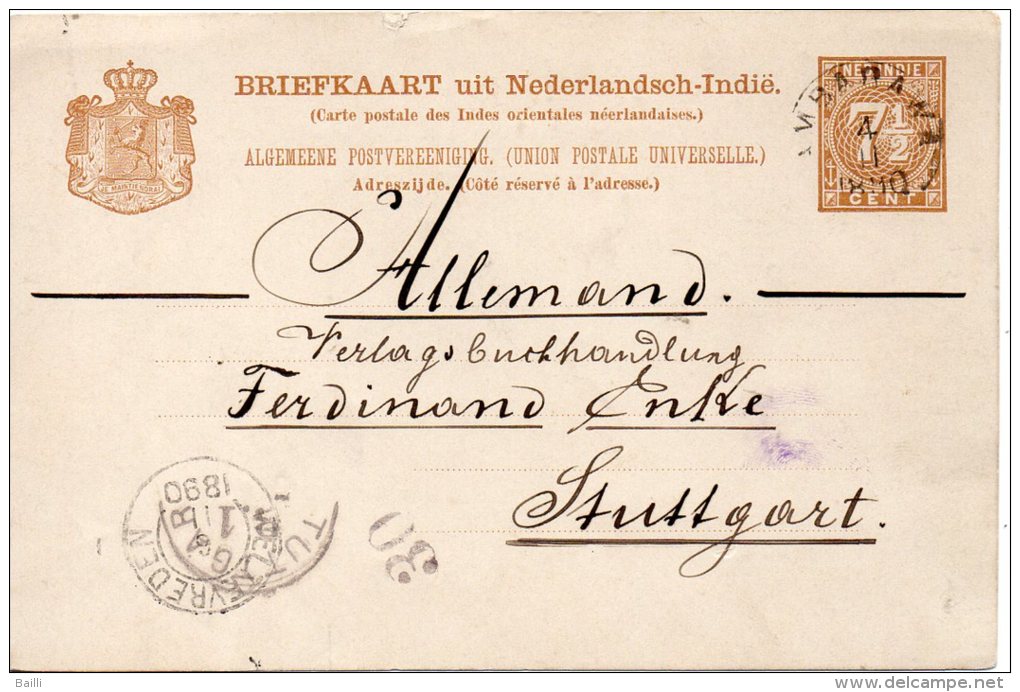 BRIEFKAART uit Nederlandsch-Indië.
(Carte postale des Indes orientales néerlandaises.)
ALGEMEENE POSTVEREENIGING. (UNION POSTALE UNIVERSELLE.)
Adreszijde. (Côté réservé à l'adresse.)
JE MAINTIENDRAI
NED. INDIE
7½
CENT
4
11
1890
Allemand.
Verlagsbuchhandlung
Ferdinand Enke
Stuttgart.
WELTEVREDEN
1890
30
Bailli